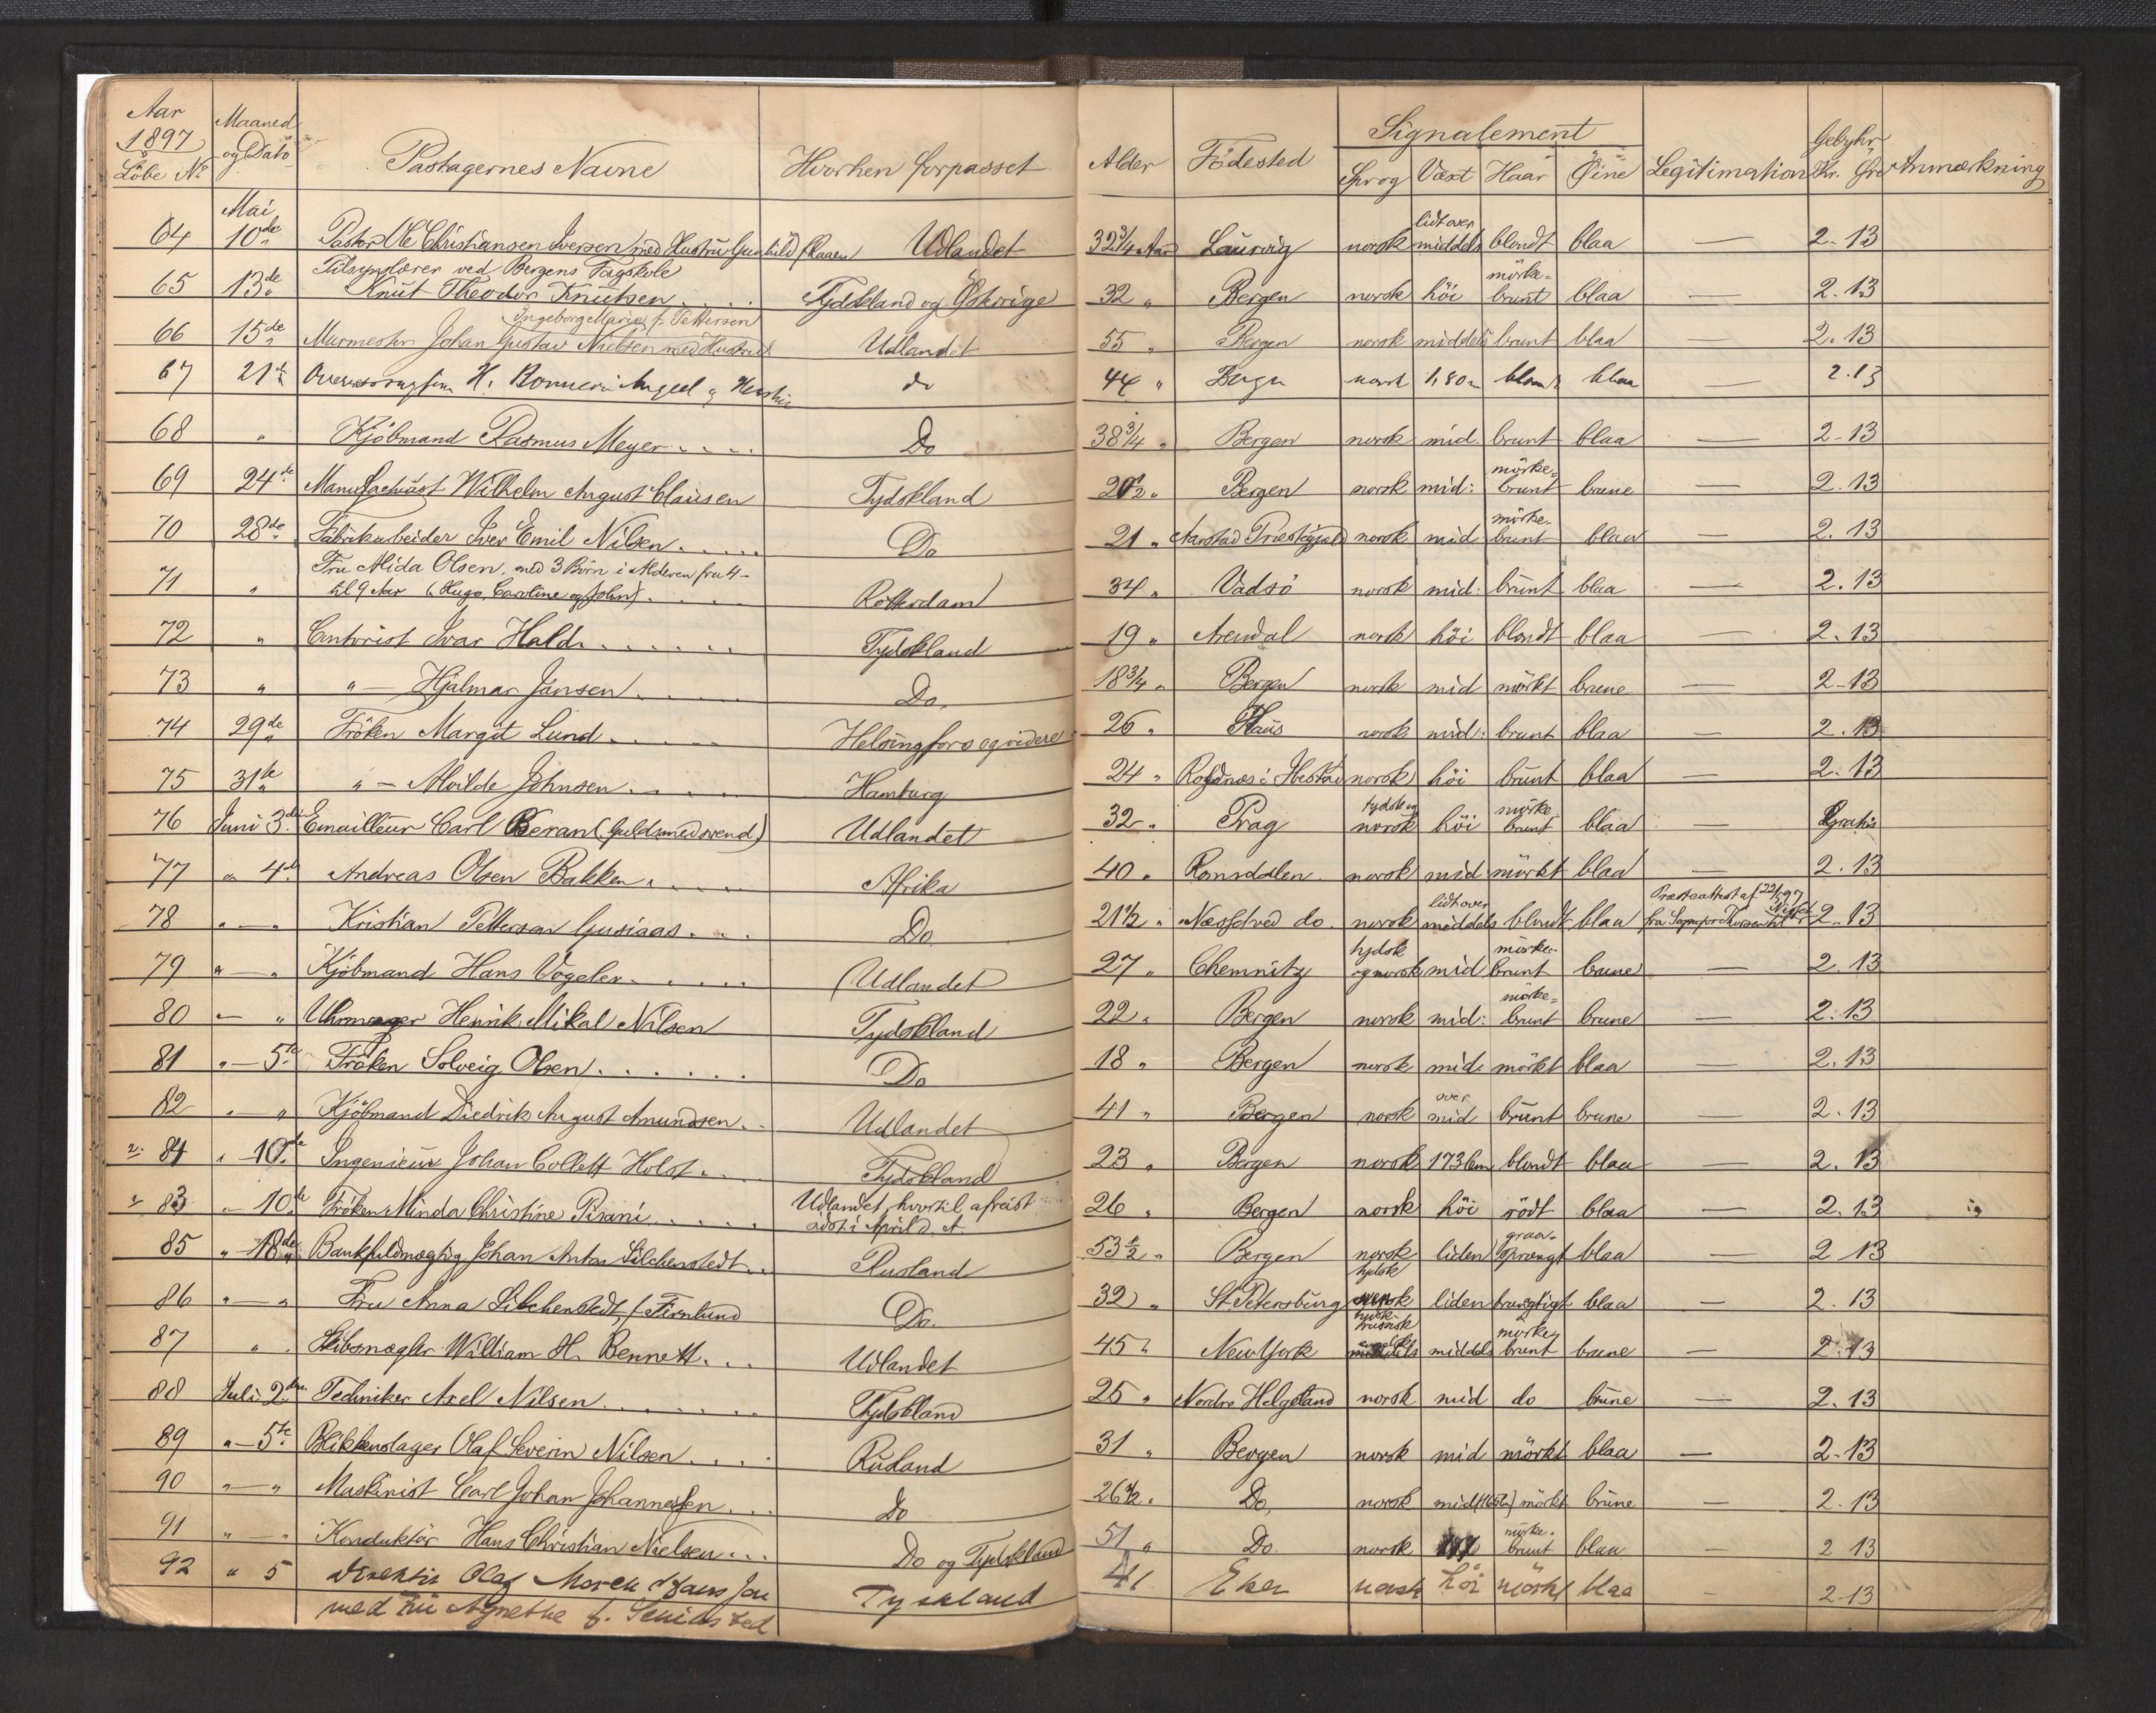 Aar 1897 Löbe No Maaned og Dato Passagernes Navne Hvorhen forpasset Alder Födested Signalement Sprog Væxt Haar Öine Legitimation Gebyhr Kr. Öre Anmærkning
Mai
64 10de Pastor Ole Christiansen Iversen med Hustru Gunhild f. Kaaen Udlandet 32 3/4 Aar Laurvig norsk lidt over middels blondt blaa — 2-13
65 13de Tilsynslærer ved Bergens Fagskole Knut Theodor Knutsen Tydskland og Östrige 32 " Bergen norsk höi mörke- brunt blaa — 2.13
66 15de Murmester Johan Gustav Nielsen med Hustru Ingeborg Marie f. Pettersen Udlandet 55 " Bergen norsk middels brunt blaa — 2.13
67 21de H. og Hustru do 44 " Bergen norsk 1,80 m blondt blaa 2.13
68 " Kjöbmand Rasmus Meyer Do 38 3/4 " Bergen norsk mid. brunt blaa — 2-13
69 24de Wilhelm August Clausen Tydskland 20 1/2 " Bergen norsk mid: mörke- brunt brune — 2.13
70 28de Fabrikarbeider Iver Emil Nilsen Do 21 " Aarstad Præstegjæld norsk mid mörke- brunt blaa — 2.13
71 " Fru Alida Olsen, med 3 Börn i Alderen fra 4- til 9 Aar (Hugo, Caroline og John) Rotterdam 34 " Vadsö norsk mid: brunt blaa — 2.13
72 " Contorist Ivar Hald Tydskland 19 " Arendal norsk höi blondt blaa — 2.13
73 " " — Hjalmar Jansen Do. 18 3/4 " Bergen norsk mid mörkt brune — 2-13
74 29de Fröken Margit Lund Helsingfors og videre 26 " Haus norsk mid: brunt blaa — 2.13
75 31te " — Alvilde Johnsen Hamburg 24 " i Ibestad norsk höi brunt blaa — 2.13
76 Juni 3die Emailleur Carl Beran (Guldsmedsvend) Udlandet 32 " Prag tydsk og norsk höi mörke brunt blaa — Gratis
77 " 4de Andreas Olsen Bakken Afrika 40 " Romsdalen norsk mid mörkt blaa — 2.13
78 " — " Kristian Pettersen Gusiaas Do. 21 1/2 " do. norsk lidt over middels blondt blaa Præsteattest af 22/5 97 fra 2-13
79 " — " Kjöbmand Hans Vogeler Udlandet 27 " Chemnitz tydsk og norsk mid mörke- brunt brune — 2.13
80 " — " Uhrmager Henrik Mikal Nilsen Tydskland 22 " Bergen norsk mid: mörke- brunt brune — 2.13
81 " — 5te Fröken Solveig Olsen Do 18 " Bergen norsk mid: mörkt blaa — 2.13
82 " — " Kjöbmand Diedrik August Amundsen Udlandet 41 " Bergen norsk over mid brunt brune — 2.13
2: 84 " — 10de Ingenieur Johan Collett Holst Tydskland 23 " Bergen norsk 173 cm blondt blaa — 2.13
1 83 " — 10de Fröken Minda Christine Pisani Udlandet, hvortil afreist sidst i April d. A. 26 " Bergen norsk höi rödt blaa — 2.13
85 " — 18de Bankfuldmægtig Johan Anton Silchenstedt Rusland 53 1/2 " Bergen norsk liden graa- sprængt blaa 2 13
86 " — " Fru Anna Silchenstedt, f. Do. 32 " St. Petersburg tydsk liden blaa — 2.13
87 " " Skibsmægler William H. Bennett Udlandet 45 " New York middels mörke- brunt brune — 2.13
88 Juli 2den Techniker Axel Nilsen Tydskland 25 " Nordre Helgeland norsk mid do brune — 2.13
89 " — 5te Blikkenslager Olaf Severin Nilsen Rusland 31 " Bergen norsk mid mörkt blaa — 2-13
90 " — " Maskinist Carl Johan Johannessen Do 26 1/2 " Do, norsk mid mörkt brune — 2.13
91 " — " Konduktör Hans Christian Nielsen Do og Tydskland 51 " Do. norsk mörke- brunt blaa — 2 13
92 " 5 Direktör Olaf Tyskland 41 Eker norsk höi mörkt blaa — 2-13
med Fru Agnethe f.